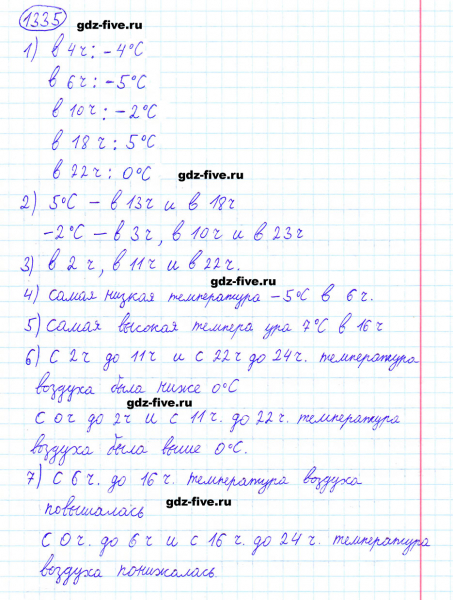 1335 gdz-five.ru
1) в 4ч: -4°C
в 6ч: -5°C
в 10ч: -2°C
в 18ч: 5°C
в 22ч: 0°C gdz-five.ru
2) 5°C – в 13ч и в 18ч
-2°C – в 3ч, в 10ч и в 23ч
3) в 2ч, в 11ч и в 22ч.
gdz-five.ru
4) самая низкая температура -5°C в 6ч.
5) самая высокая темпера ура 7°C в 16ч
6) С 2ч до 11ч и с 22ч до 24ч. температура
воздуха была ниже 0°C
gdz-five.ru
С 0ч до 2ч и с 11ч. до 22ч. температура
воздуха была выше 0°C.
gdz-five.ru
7) С 6ч. до 16ч. температура воздуха
gdz-five.ru
повышалась
С 0ч. до 6ч и с 16ч. до 24ч. температура
воздуха понижалась